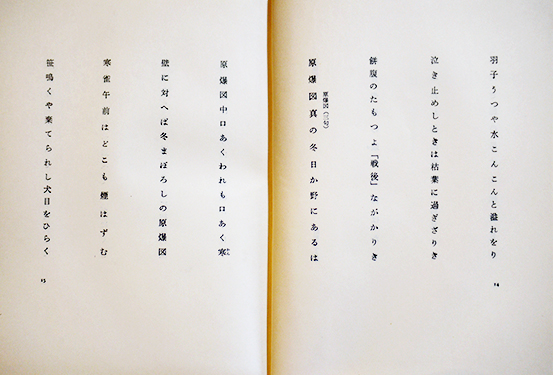 羽子うつや水こんこんと溢れをり
泣き止めしときは枯葉に過ぎざりき
餅腹のたもつよ「戦後」ながかりき
原爆図(三句)
原爆図真の冬日か野にあるは
14
原爆図中口あくわれも口あく寒
壁に対へば冬まぼろしの原爆図
寒雀午前はどこも煙はずむ
笹鳴くや棄てられし犬目をひらく
15